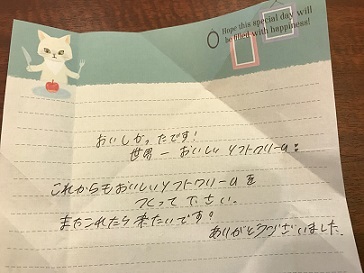 Hope this special day will
be filled with happiness!
おいしかったです!
世界一おいしいソフトクリーム!
これからもおいしいソフトクリームを
つくって下さい。
またこれたら来たいです!
ありがとうございました。